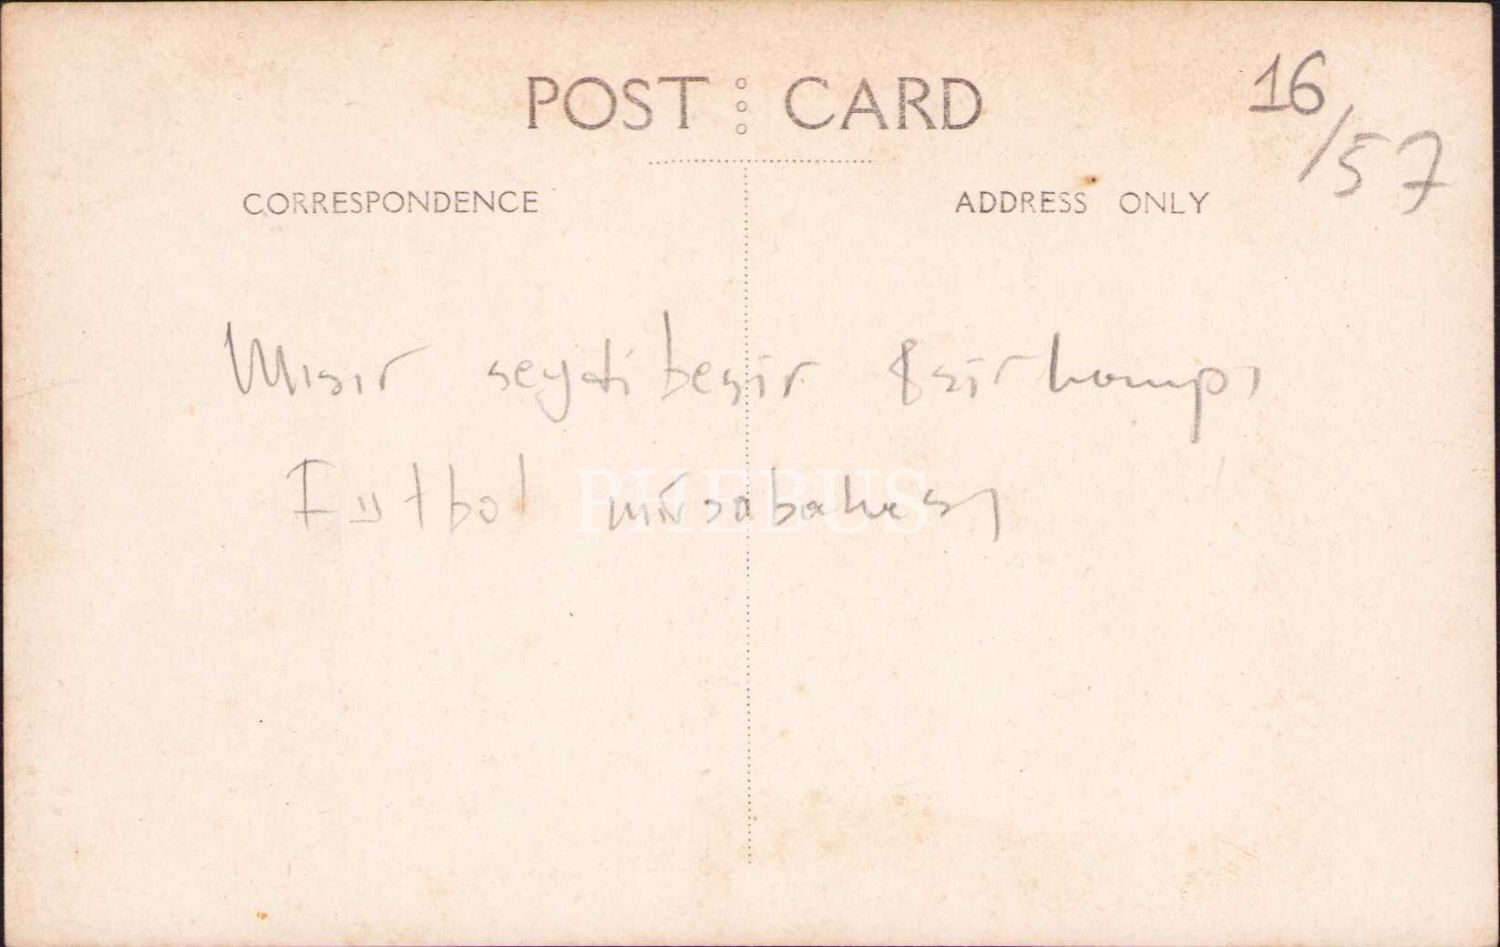 POST CARD
16/57
CORRESPONDENCE
ADDRESS ONLY
Mısır seydibeşir Esir kampı
Futbol müsabakası
PHEBUS